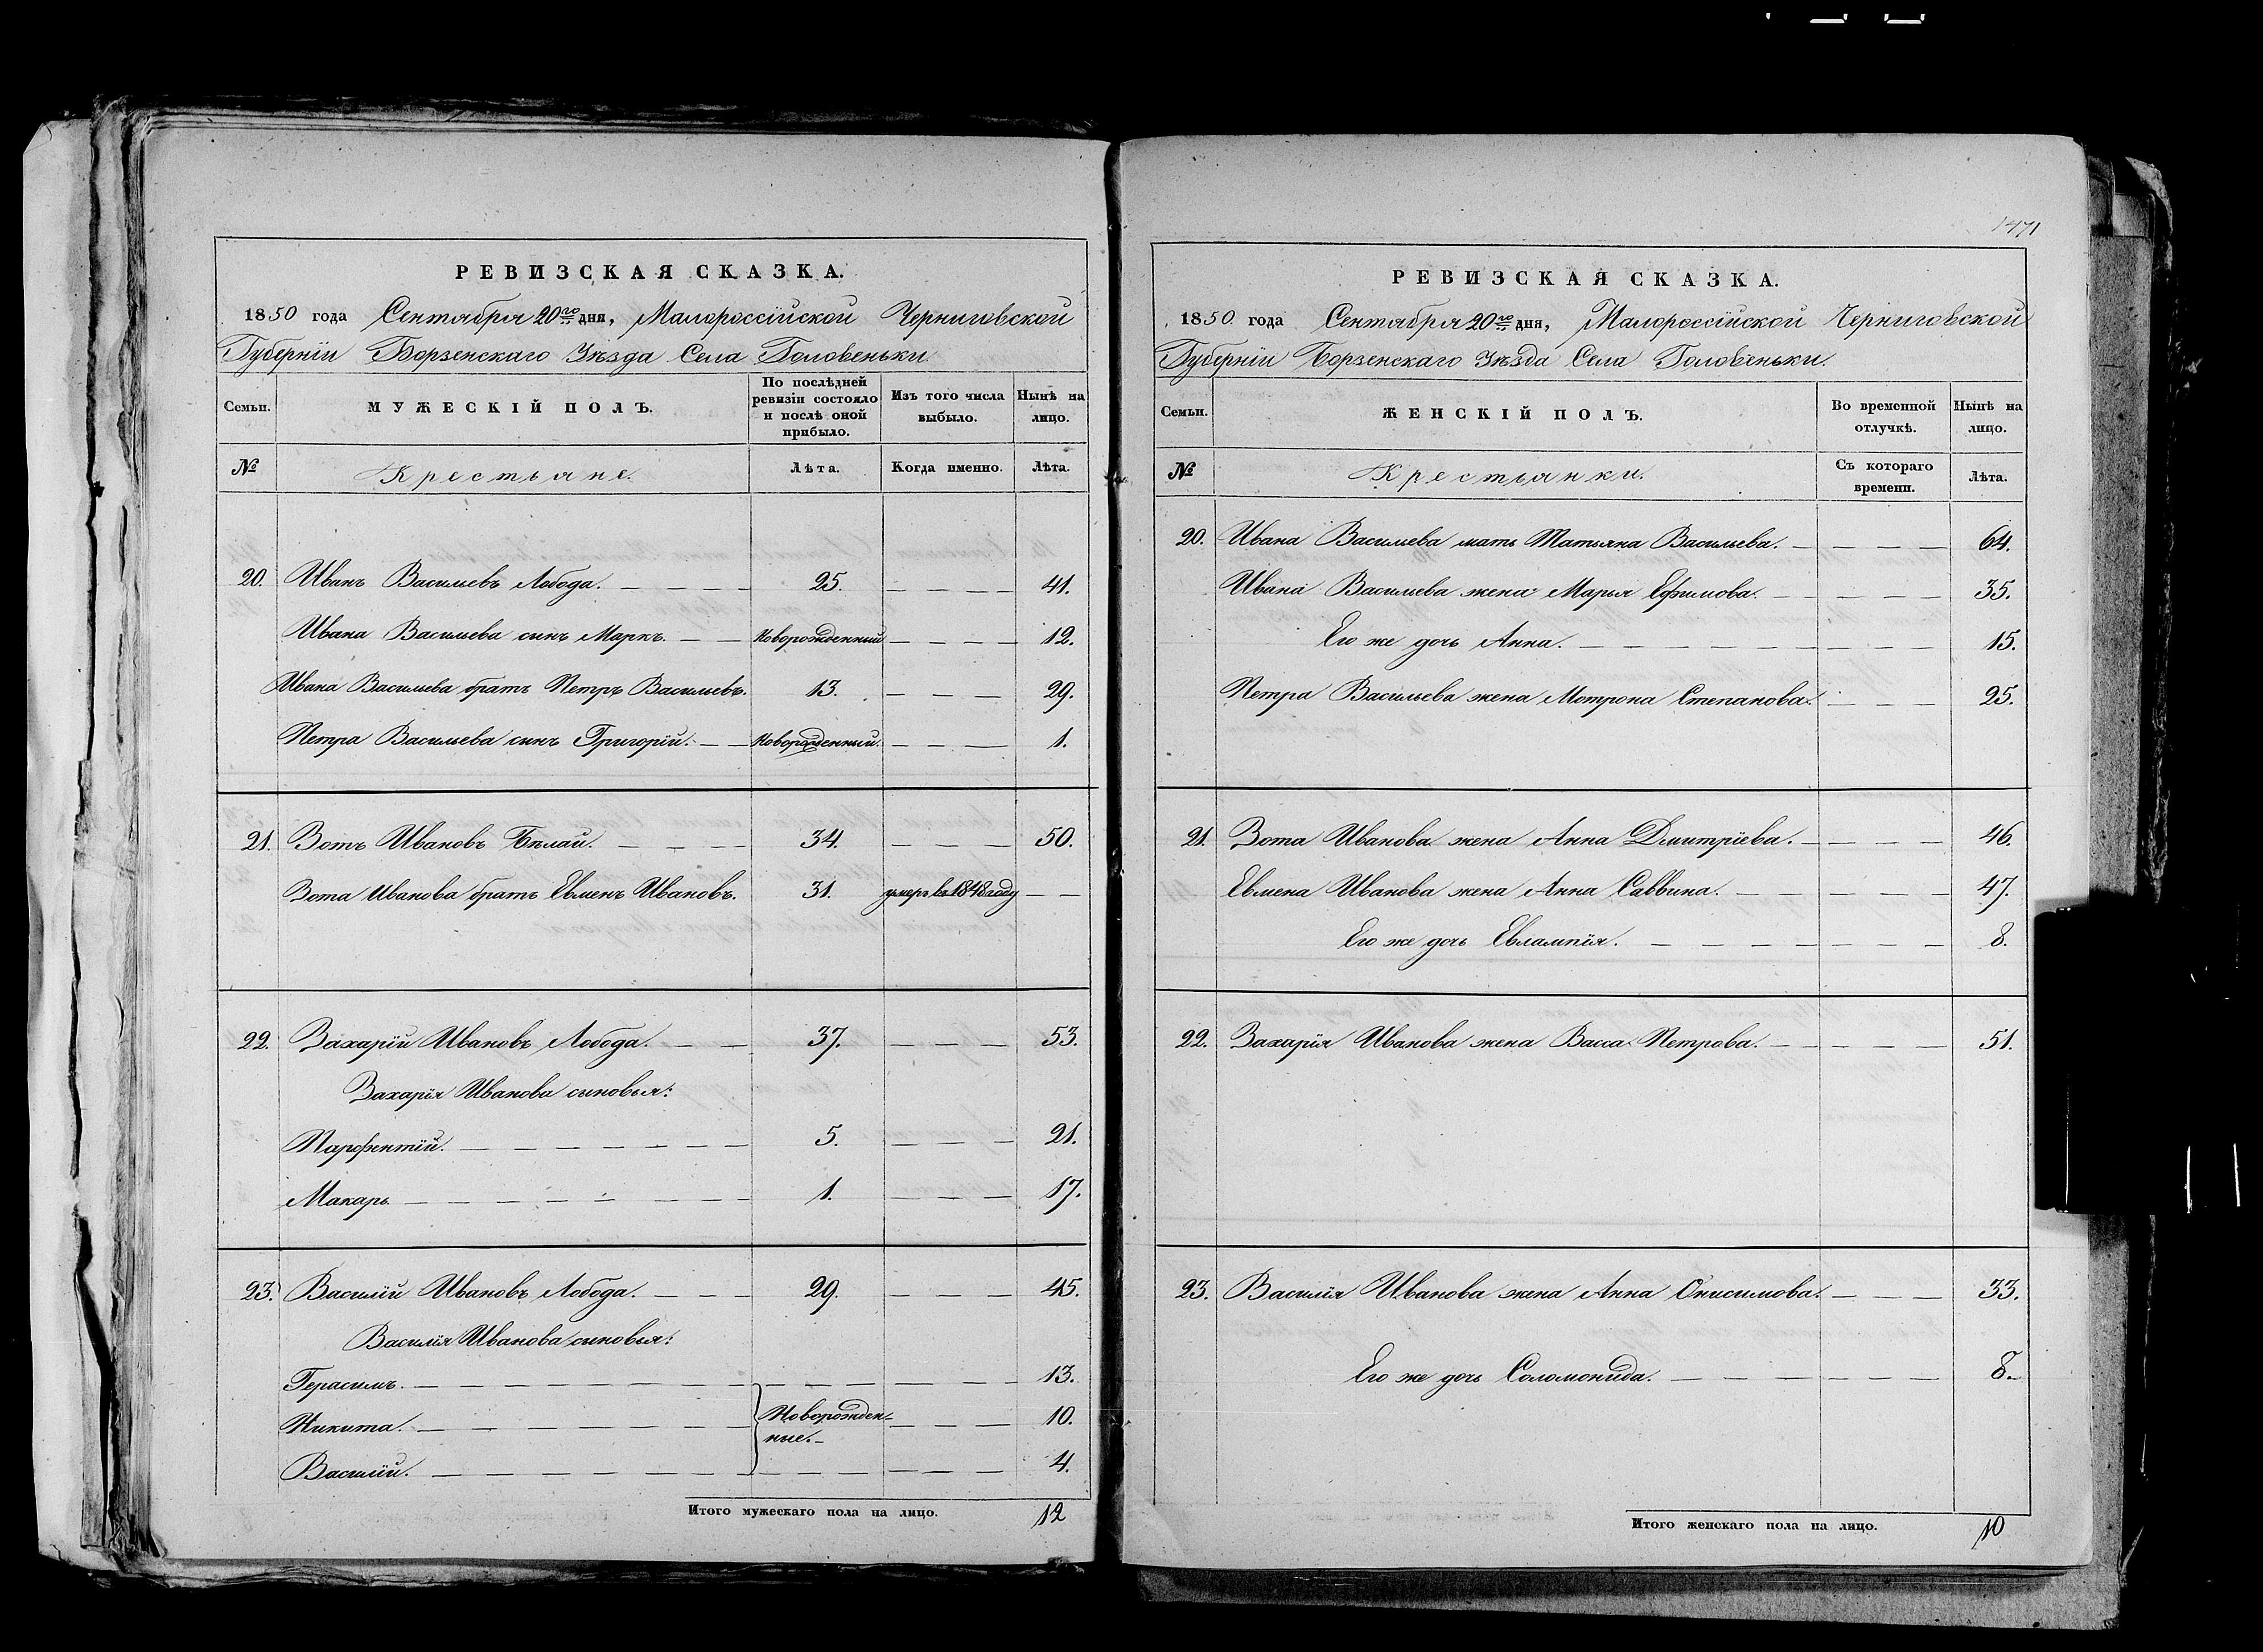 РЕВИЗСКАЯ СКАЗКА.
1850 года Сентября 20го дня, Малороссійской Черниговской
Губерніи Борзенскаго Уѣзда Села Головеньки.
Семьи. МУЖЕСКІЙ ПОЛЪ. По послѣдней ревизіи состояло и послѣ оной прибыло. Изъ того числа выбыло. Нынѣ на лицо.
№ Крестьяне. Лѣта. Когда именно. Лѣта.
20. Иванъ Васильевъ Лобода. — — — 25. — — — — 41.
Ивана Васильева сынъ Маркъ. — — Новорожденный — — — — 12.
Ивана Васильева братъ Петръ Васильевъ. 13. — — — 29.
Петра Васильева сынъ Григорій. — — Новорожденный. — — — 1.
21. Зотъ Ивановъ Бѣлай. — — — 34. — — — 50.
Зота Иванова братъ Евменъ Ивановъ. 31. умеръ въ 1848 году — —
22. Захарій Ивановъ Лобода. — — 37. — — — 53.
Захарія Иванова сыновья:
Парфентій. — — — — — — 5. — — — 21.
Макаръ — — — — — — — 1. — — — 17.
23. Василій Ивановъ Лобода. — — — 29. — — — 45.
Василія Иванова сыновья:
Герасимъ. — — — — — — — — — — — 13.
Никита. — — — — — — Новорожден- — — — 10.
ные.
Василій. — — — — — — — — — — — 4.
Итого мужескаго пола на лицо. 12
1471
РЕВИЗСКАЯ СКАЗКА.
1850. года Сентября 20го дня, Малороссійской Черниговской
Губерніи Борзенскаго Уѣзда Села Головеньки.
Семьи. ЖЕНСКІЙ ПОЛЪ. Во временной отлучкѣ. Нынѣ на лицо.
№ Крестьянки. Съ котораго времени. Лѣта.
20. Ивана Васильева мать Татьяна Васильева. — — — — 64.
Ивана Васильева жена Марья Ефимова. — — — — 35.
Его же дочь Анна. — — — — — — — — 15.
Петра Васильева жена Мотрона Степанова. — — — 25.
21. Зота Иванова жена Анна Дмитріева. — — — — 46.
Евмена Иванова жена Анна Саввина. — — — — 47.
Его же дочь Евлампія. — — — — — — — 8.
22. Захарія Иванова жена Васса Петрова. — — — — 51.
23. Василія Иванова жена Анна Онисимова. — — — 33.
Его же дочь Соломонида. — — — — — — 8.
Итого женскаго пола на лицо. 10